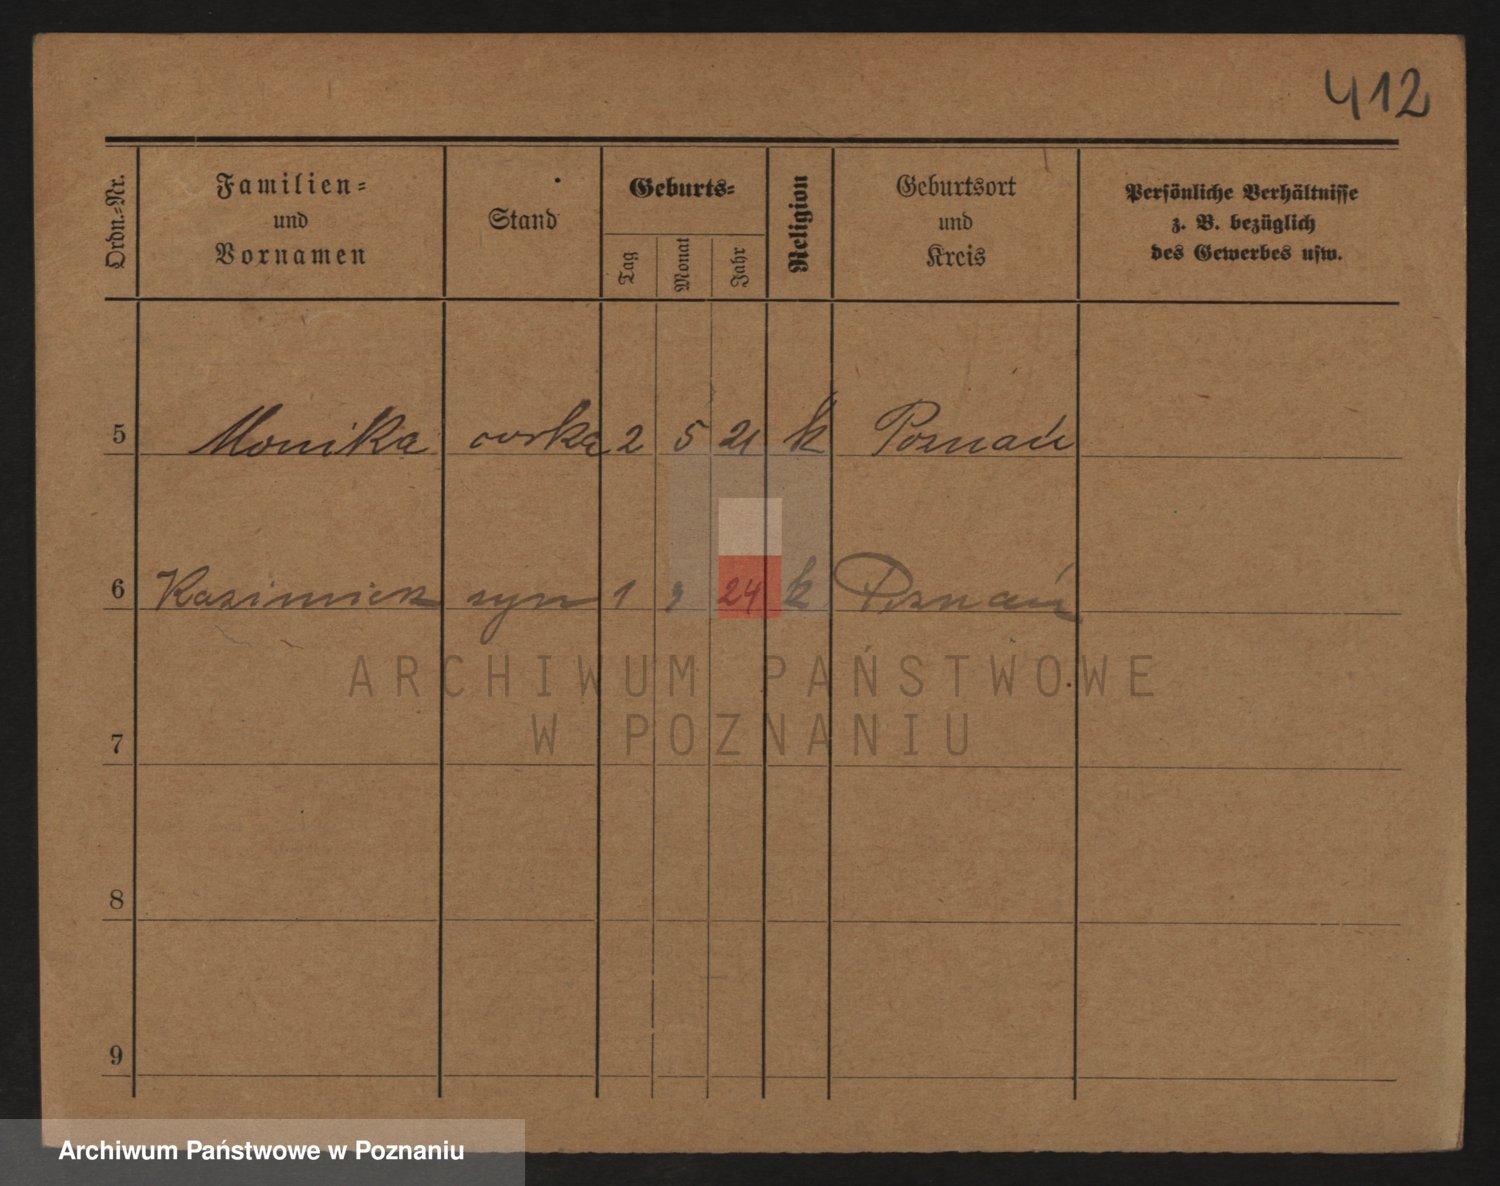 412
Ordn.-Nr.
Familien-
und
Vornamen
Stand
Geburts-
Tag
Monat
Jahr
Religion
Geburtsort
und
Kreis
Persönliche Verhältnisse
z. B. bezüglich
des Gewerbes usw.
5 Monika 2 5 21 k Poznań
6 Kazimierz syn 1 24 k Poznań
ARCHIWUM PAŃSTWOWE
W POZNANIU
7
8
9
Archiwum Państwowe w Poznaniu